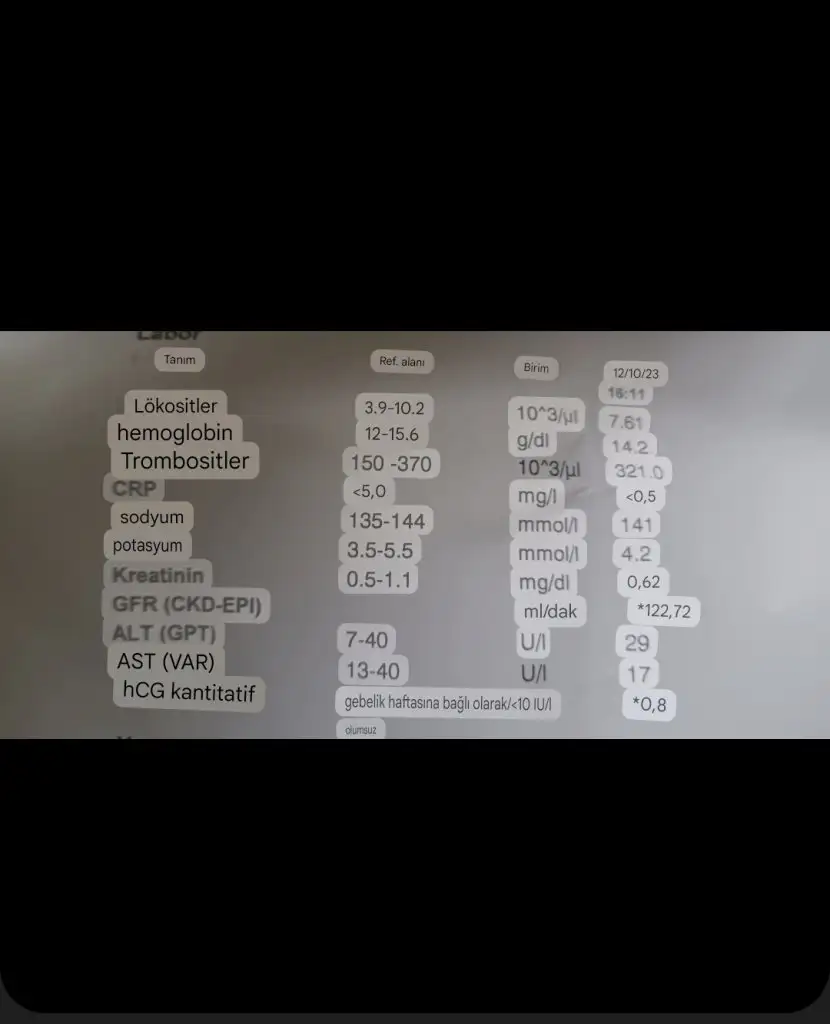 Labor
Tanım Ref. alanı Birim 12/10/23
16:11
Lökositler 3.9-10.2 10^3/µl 7.61
hemoglobin 12-15.6 g/dl 14.2
Trombositler 150 -370 10^3/µl 321.0
CRP <5,0 mg/l <0,5
sodyum 135-144 mmol/l 141
potasyum 3.5-5.5 mmol/l 4.2
Kreatinin 0.5-1.1 mg/dl 0,62
GFR (CKD-EPI) ml/dak *122,72
ALT (GPT) 7-40 U/l 29
AST (VAR) 13-40 U/l 17
hCG kantitatif gebelik haftasına bağlı olarak/<10 IU/l *0,8
olumsuz